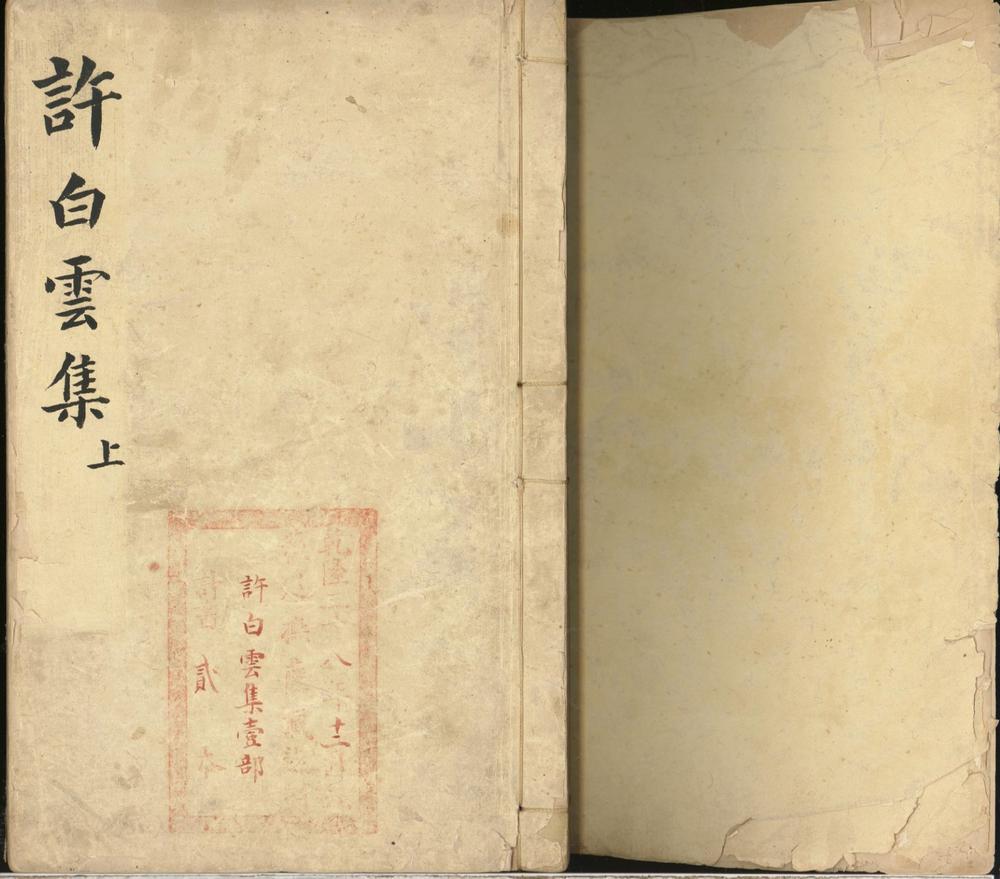 許白雲集上
乾隆三十八年十二月
許白雲集壹部
計書貳本